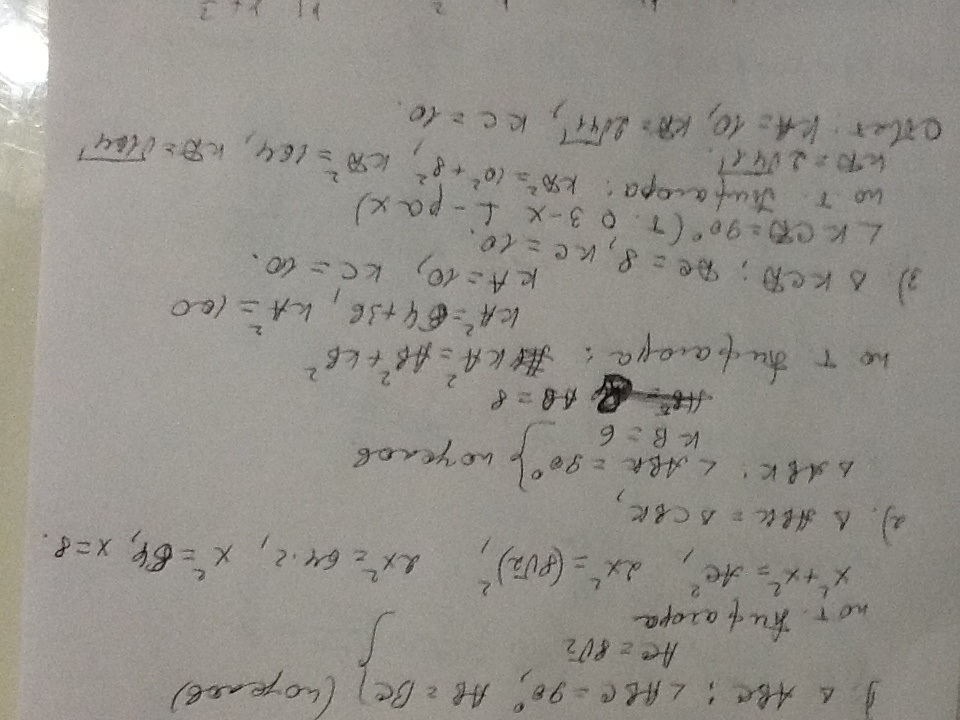 1). Δ ABC: ∠ABC = 90°, AB = BC } (по услов)
AC = 8√2
по т. Пифагора
x² + x² = AC², 2x² = (8√2)², 2x² = 64·2, x² = 64, x = 8.
2). Δ ABK = Δ CBK,
Δ ABK: ∠ABK = 90° } по услов
KB = 6
AB = 8
по т Пифагора: KA² = AB² + KB²
KA² = 64 + 36, KA² = 100
KA = 10, KC = 10.
3) Δ KCD: DC = 8, KC = 10.
∠ KCD = 90° (т. о 3-х ⊥-рах)
по т. Пифагора: KD² = 10² + 8², KD² = 164, KD = √164
KD = 2√41.
Ответ: KA = 10, KD = 2√41, KC = 10.